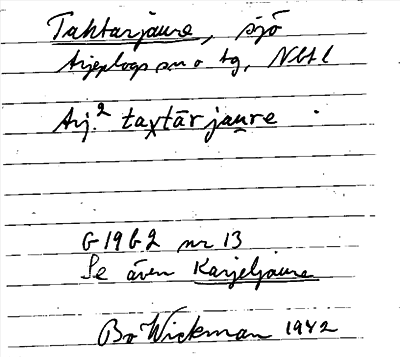 Tahtarjaure, sjö
Arjeplogs sn o tg, Nbtl
Arj.² taχtārjau̯re
G 19 b 2 nr 13
Se även Karjeljaure
Bo Wickman 1942